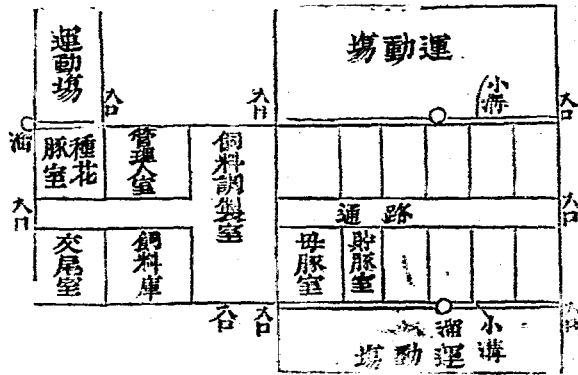 運動場
場動運
小溝
入口
入口
入口
溜
種花
豚室
管理人室
飼料調製室
入口
通路
入口
交尾室
飼料庫
母豚室
貯豚室
入口
入口
入口
溜
小溝
場動運